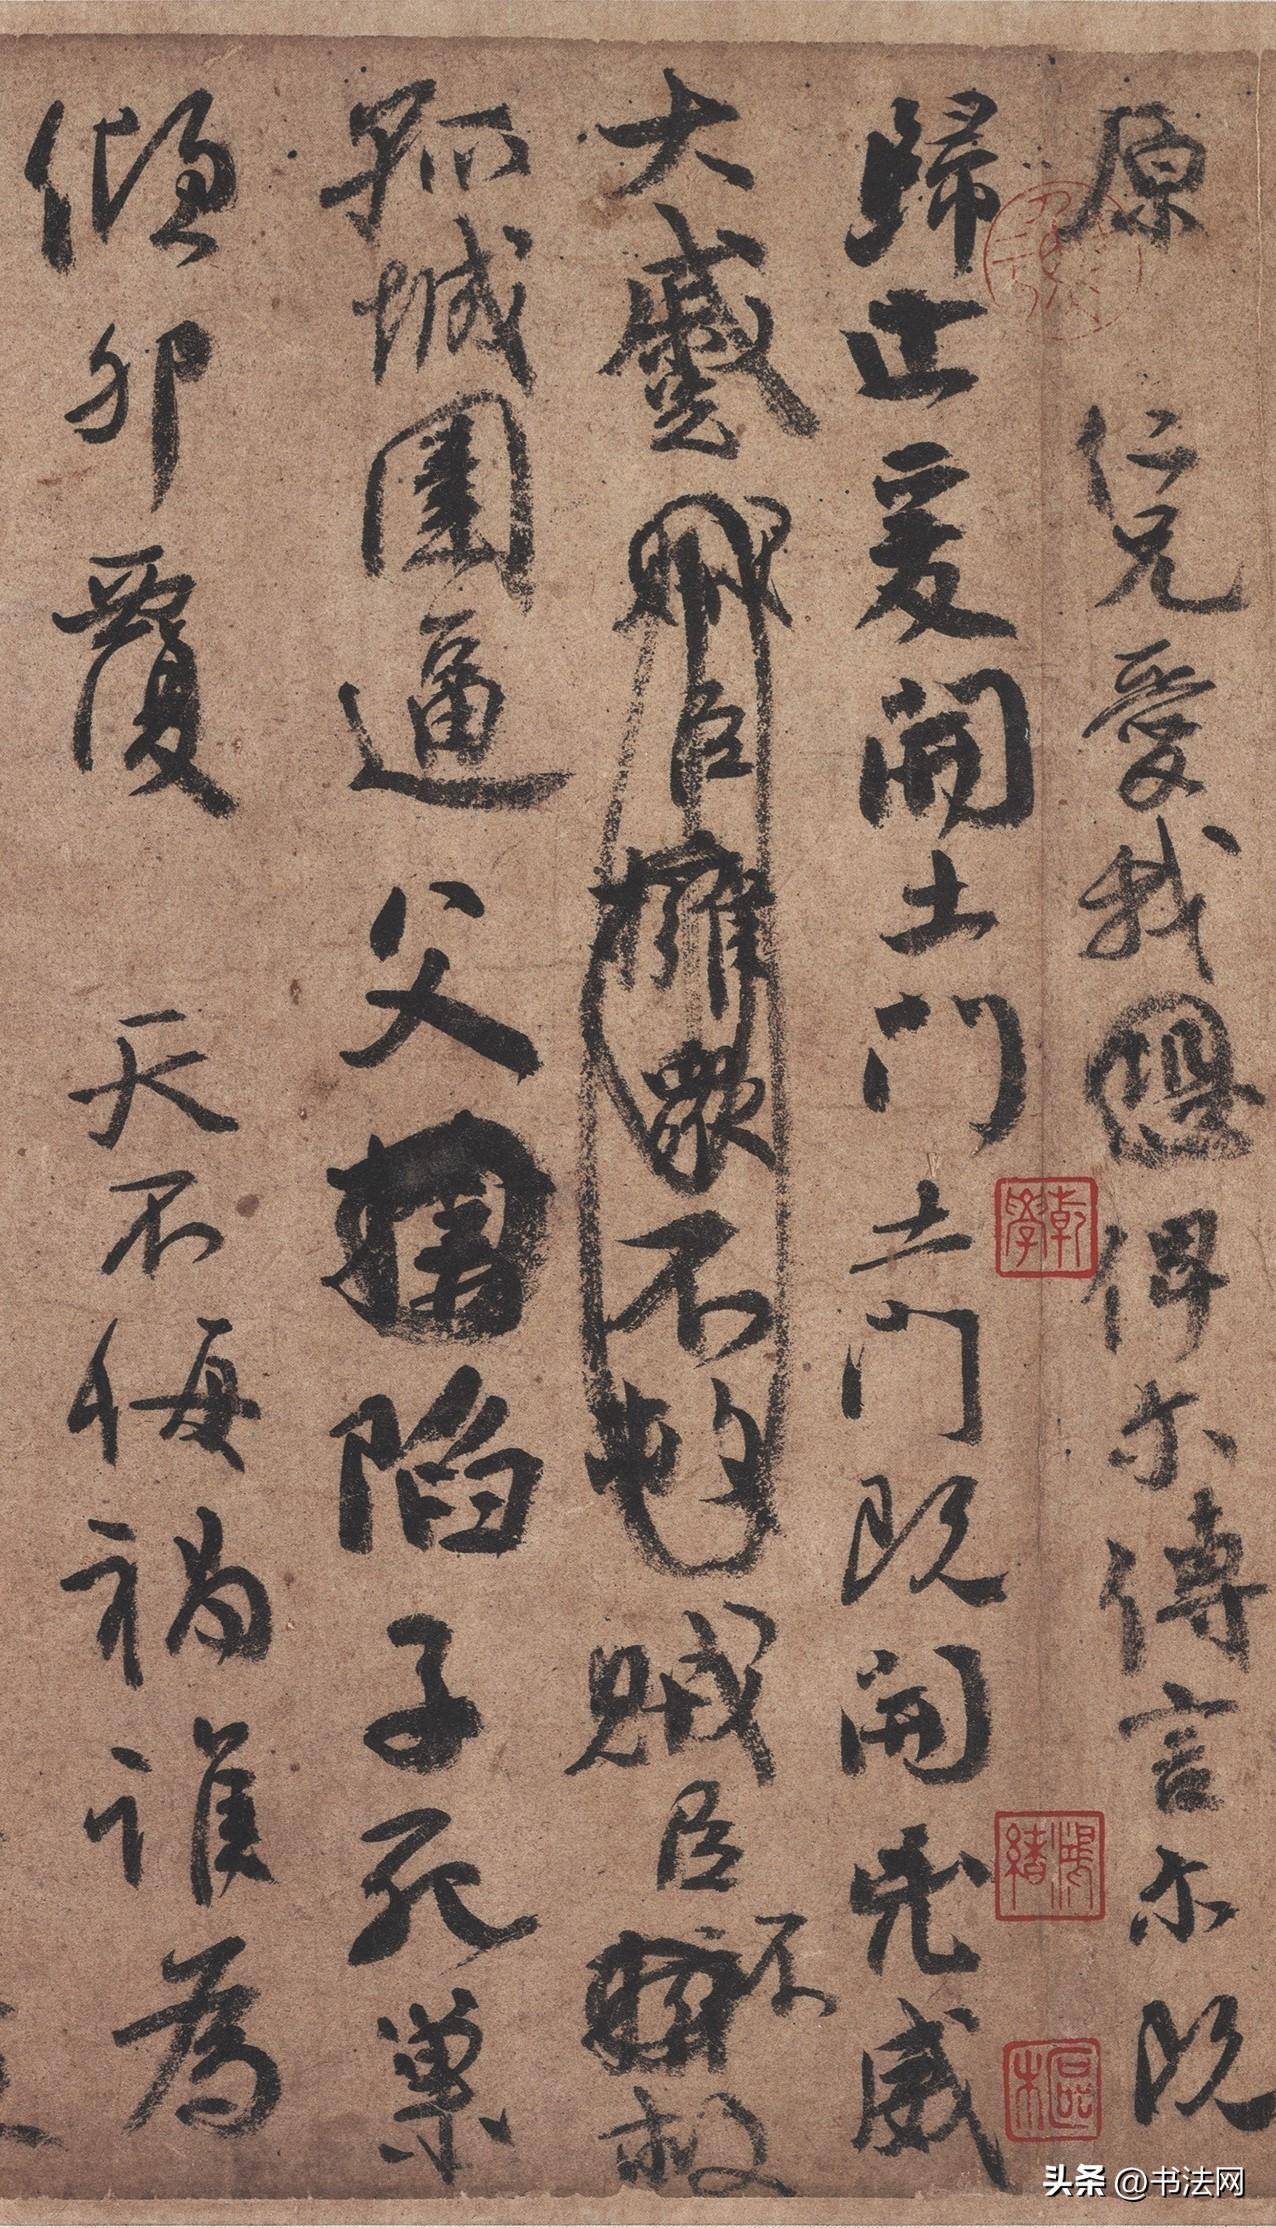 原 仁兄愛我恐俾尔傅言尔既
歸止爰開土門土門既開凶威
大蹙賊臣擁衆不救賊臣不救
孤城圍逼父陷子死巢
傾卵覆 天不悔禍誰為
乾學
頭条 @书法网